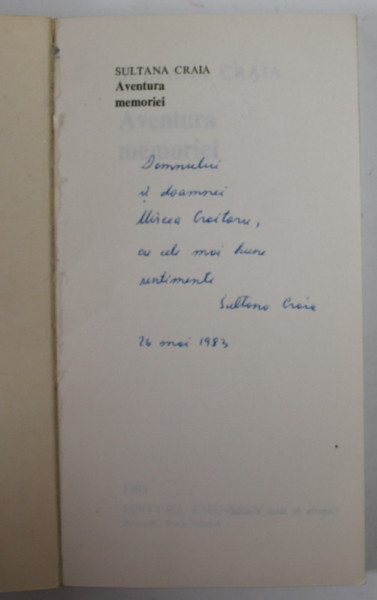 SULTANA CRAIA
Aventura
memoriei
Domnului
și doamnei
Mircea Croitoru,
cu cele mai bune
sentimente
Sultana Craia
26 mai 1983